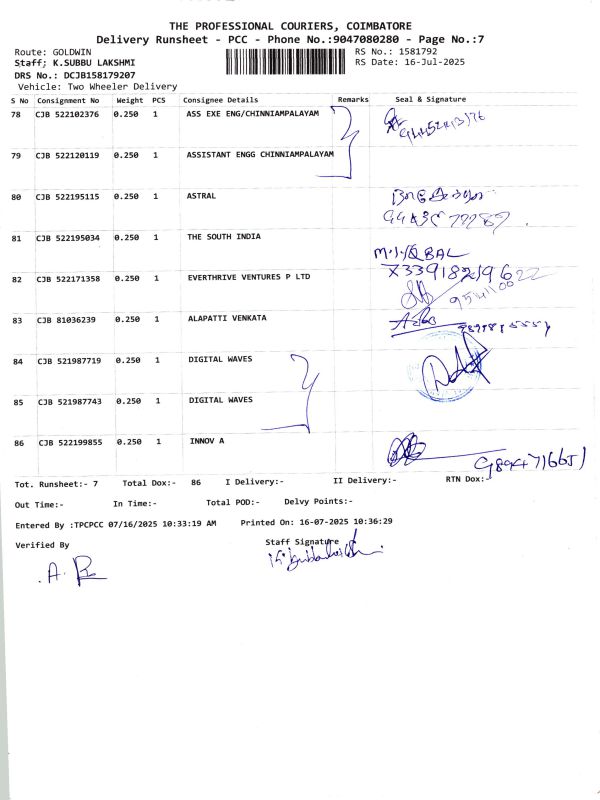 THE PROFESSIONAL COURIERS, COIMBATORE
Delivery Runsheet - PCC - Phone No.:9047080280 - Page No.:7
Route: GOLDWIN RS No.: 1581792
Staff; K.SUBBU LAKSHMI RS Date: 16-Jul-2025
DRS No.: DCJB158179207
Vehicle: Two Wheeler Delivery
S No Consignment No Weight PCS Consignee Details Remarks Seal & Signature
78 CJB 522102376 0.250 1 ASS EXE ENG/CHINNIAMPALAYAM
79 CJB 522120119 0.250 1 ASSISTANT ENGG CHINNIAMPALAYAM
80 CJB 522195115 0.250 1 ASTRAL
81 CJB 522195034 0.250 1 THE SOUTH INDIA
M.I.IQBAL
82 CJB 522171358 0.250 1 EVERTHRIVE VENTURES P LTD
83 CJB 81036239 0.250 1 ALAPATTI VENKATA
84 CJB 521987719 0.250 1 DIGITAL WAVES
85 CJB 521987743 0.250 1 DIGITAL WAVES
86 CJB 522199855 0.250 1 INNOV A
Tot. Runsheet:- 7 Total Dox:- 86 I Delivery:- II Delivery:- RTN Dox:-
Out Time:- In Time:- Total POD:- Delvy Points:-
Entered By :TPCPCC 07/16/2025 10:33:19 AM Printed On: 16-07-2025 10:36:29
Verified By Staff Signature